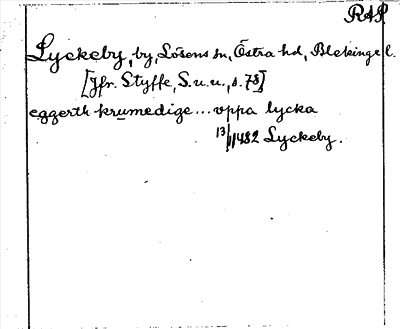 RAP.
Lyckeby, by, Lösens sn, Östra hd, Blekinge l.
[Jfr. Styffe, S.u.u., s. 78]
eggerth krumedige... vppa lycka
13/11 1482 Lyckeby.